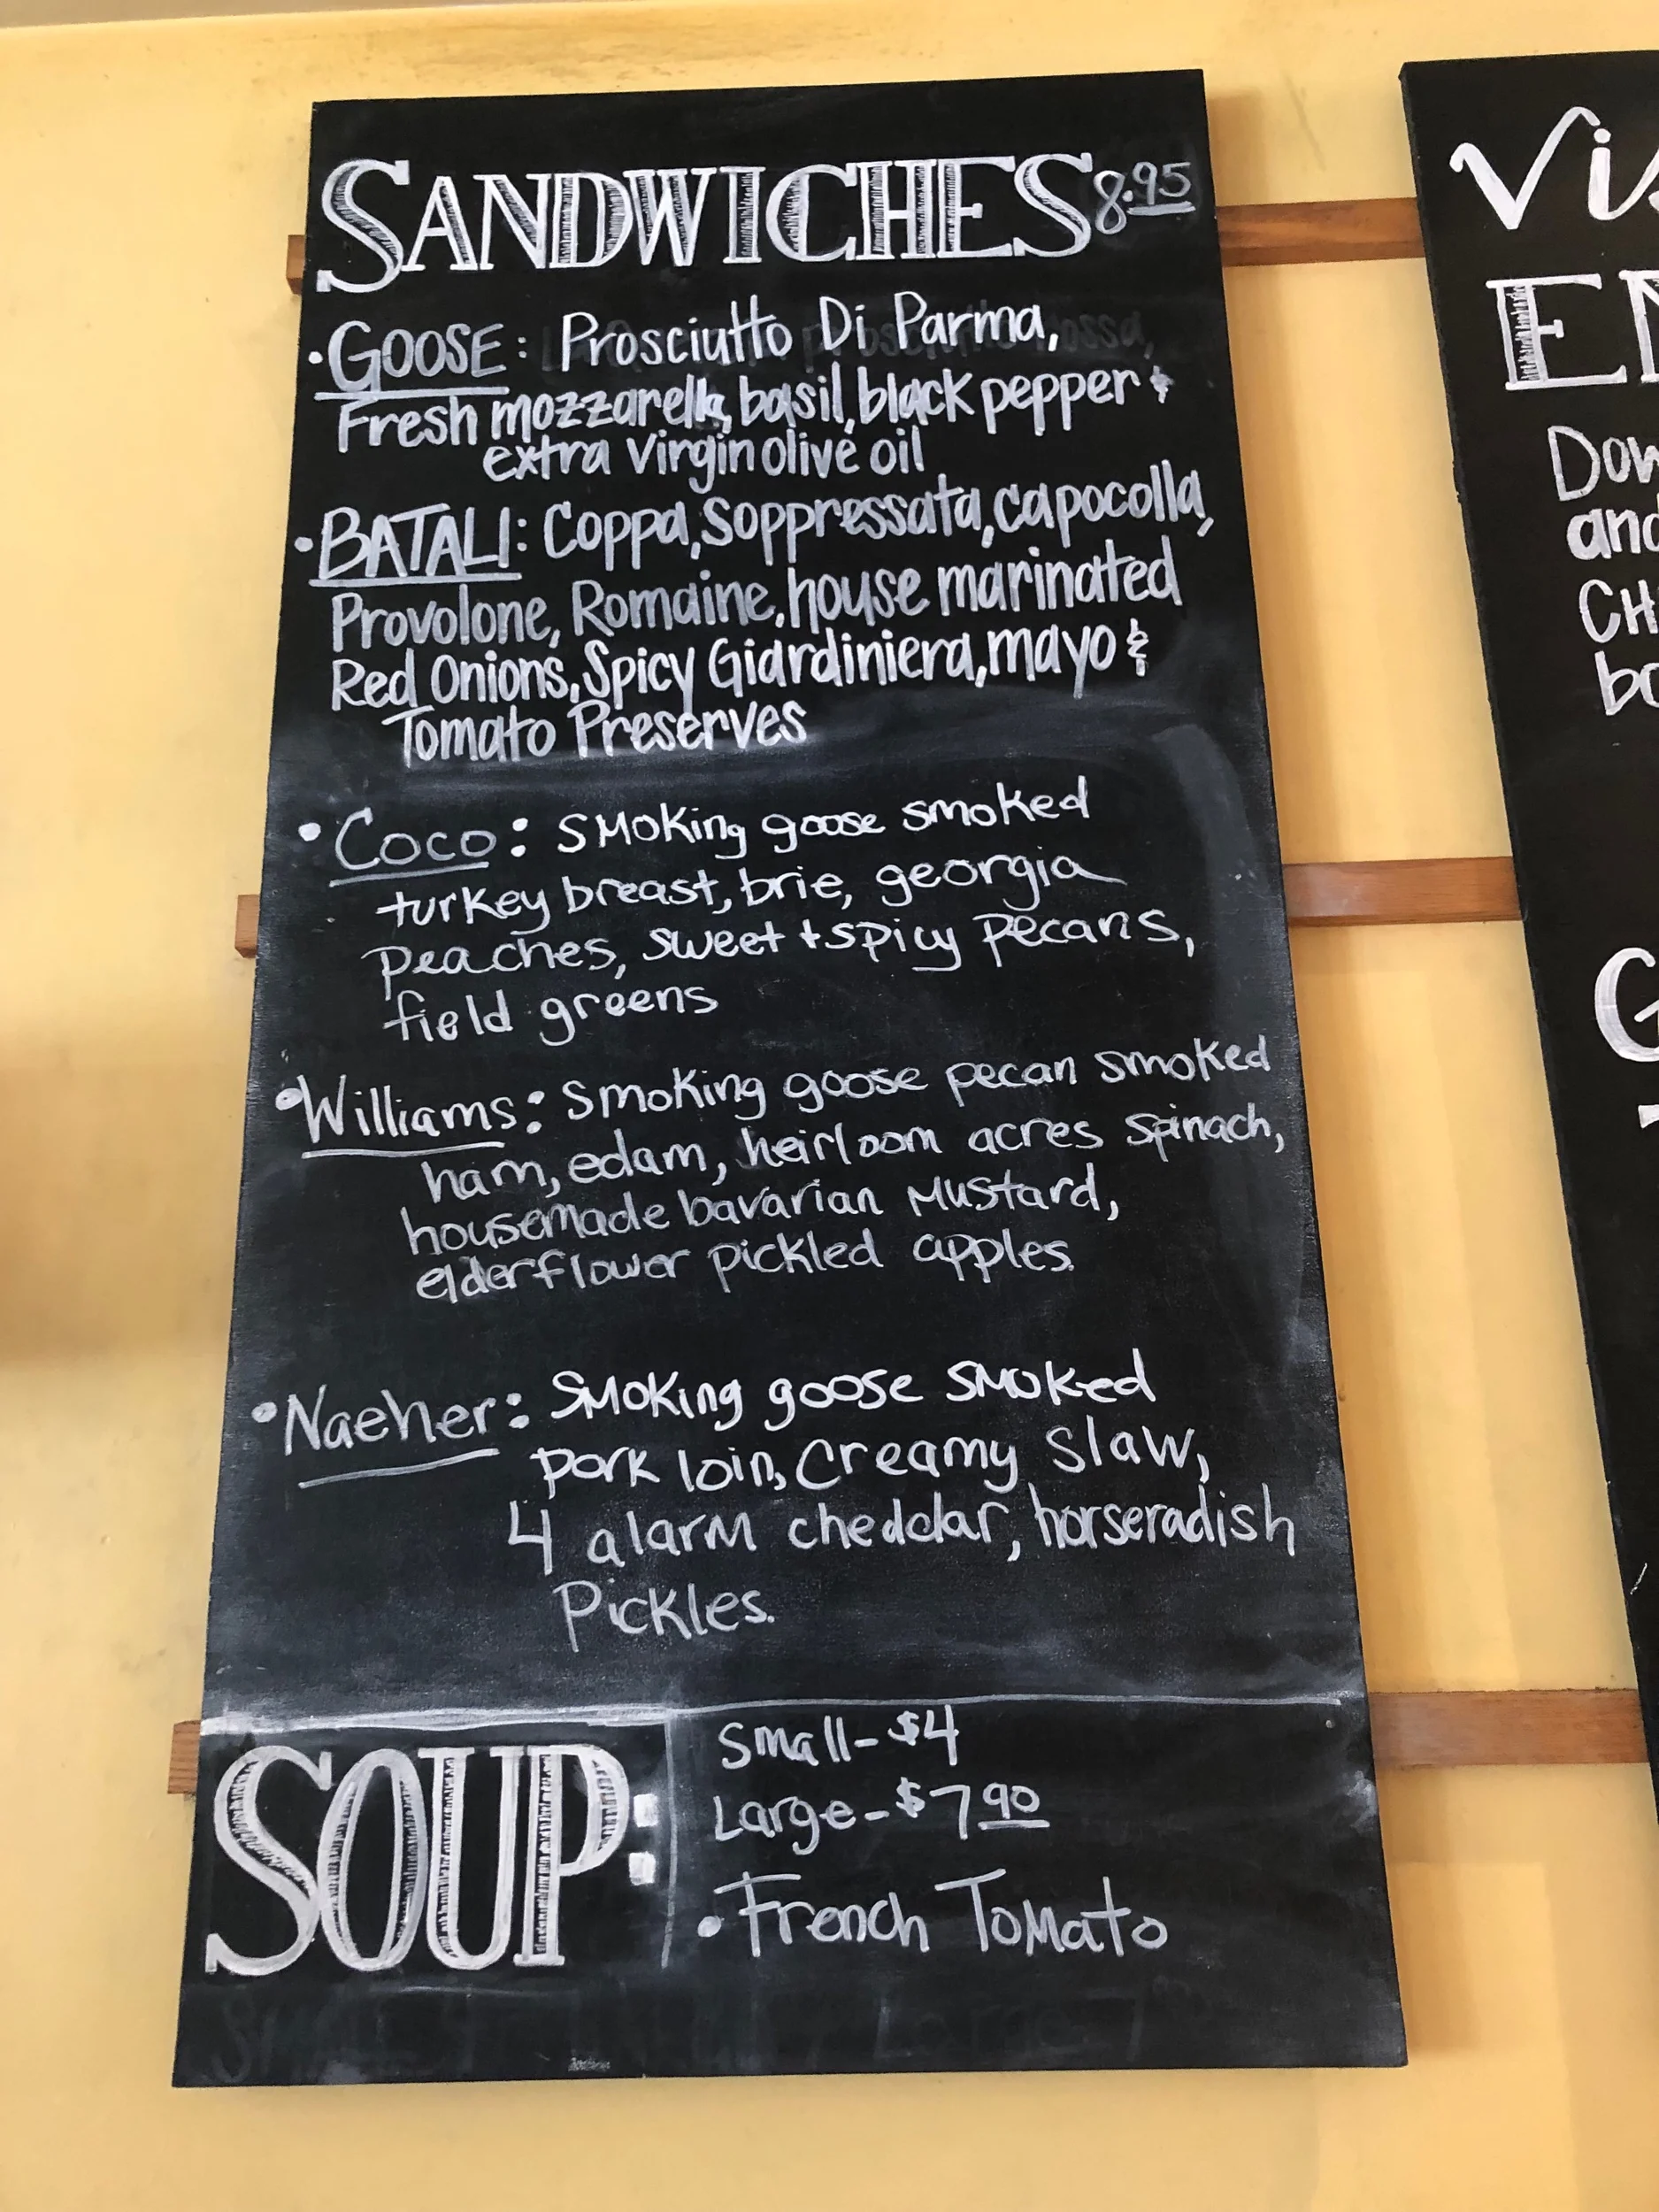 SANDWICHES 8.95
• GOOSE: Prosciutto Di Parma,
Fresh mozzarella, basil, black pepper &
extra virgin olive oil
• BATALI: Coppa, Soppressata, capocolla,
Provolone, Romaine, house marinated
Red Onions, Spicy Giardiniera, mayo &
Tomato Preserves
• Coco: smoking goose smoked
turkey breast, brie, georgia
peaches, sweet + spicy pecans,
field greens
• Williams: smoking goose pecan smoked
ham, edam, heirloom acres spinach,
housemade bavarian mustard,
elderflower pickled apples.
• Naeher: smoking goose smoked
pork loin, creamy slaw,
4 alarm cheddar, horseradish
Pickles.
SOUP:
Small - $4
Large - $7 90
• French Tomato
Vis
E
Dow
and
CH
bo
G